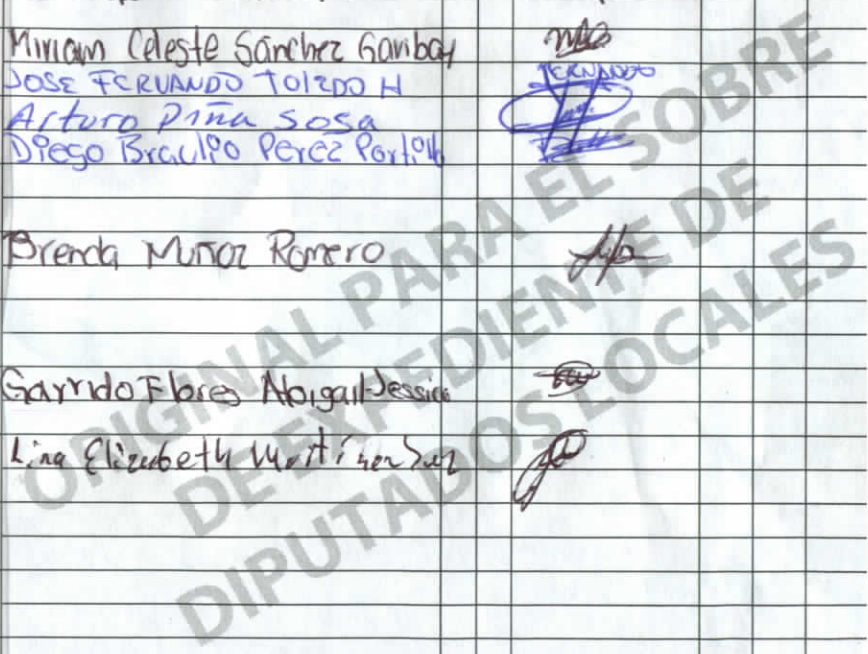 Miriam Celeste Sánchez Garibay
JOSE FERNANDO TOLEDO H
FERNANDO
Arturo Piña Sosa
Diego Braulio Perez Portillo
Brenda Muñoz Romero
Garrido Flores Abigail Jessica
Lina Elizabeth
ORIGINAL PARA EL SOBRE
DE EXPEDIENTE DE
DIPUTADOS LOCALES